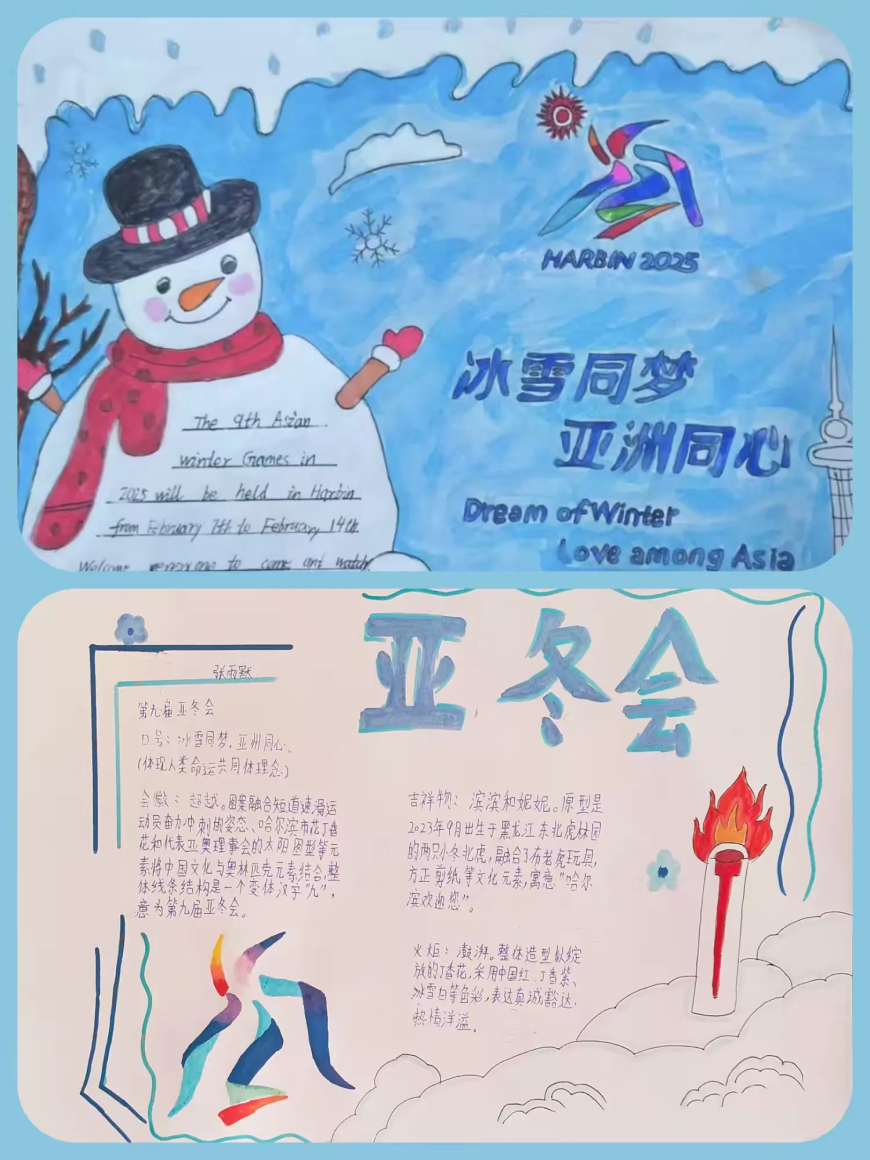 HARBIN 2025
冰雪同梦
亚洲同心
Dream of Winter
Love among Asia
The 9th Asian
winter Games in
2025 will be held in Harbin
from February 7th to February 14th
to come and watch
亚冬会
张雨
第九届亚冬会
口号:冰雪同梦,亚洲同心。
(体现人类命运共同体理念)
会徽:超越。图案融合短道速滑运
动员奋力冲刺的姿态、哈尔滨市花丁香
花和代表亚奥理事会的太阳图型等元
素将中国文化与奥林匹克元素结合,整
体线条结构是一个变体汉字"九",
意为第九届亚冬会。
吉祥物:滨滨和妮妮。原型是
2023年9月出生于黑龙江东北虎林园
的两只小东北虎,融合了布老虎玩具,
方正剪纸等文化元素,寓意"哈尔
滨欢迎您"。
火炬:澎湃。整体造型似绽
放的丁香花,采用中国红、丁香紫、
冰雪白等色彩,表达真诚豁达、
热情洋溢。